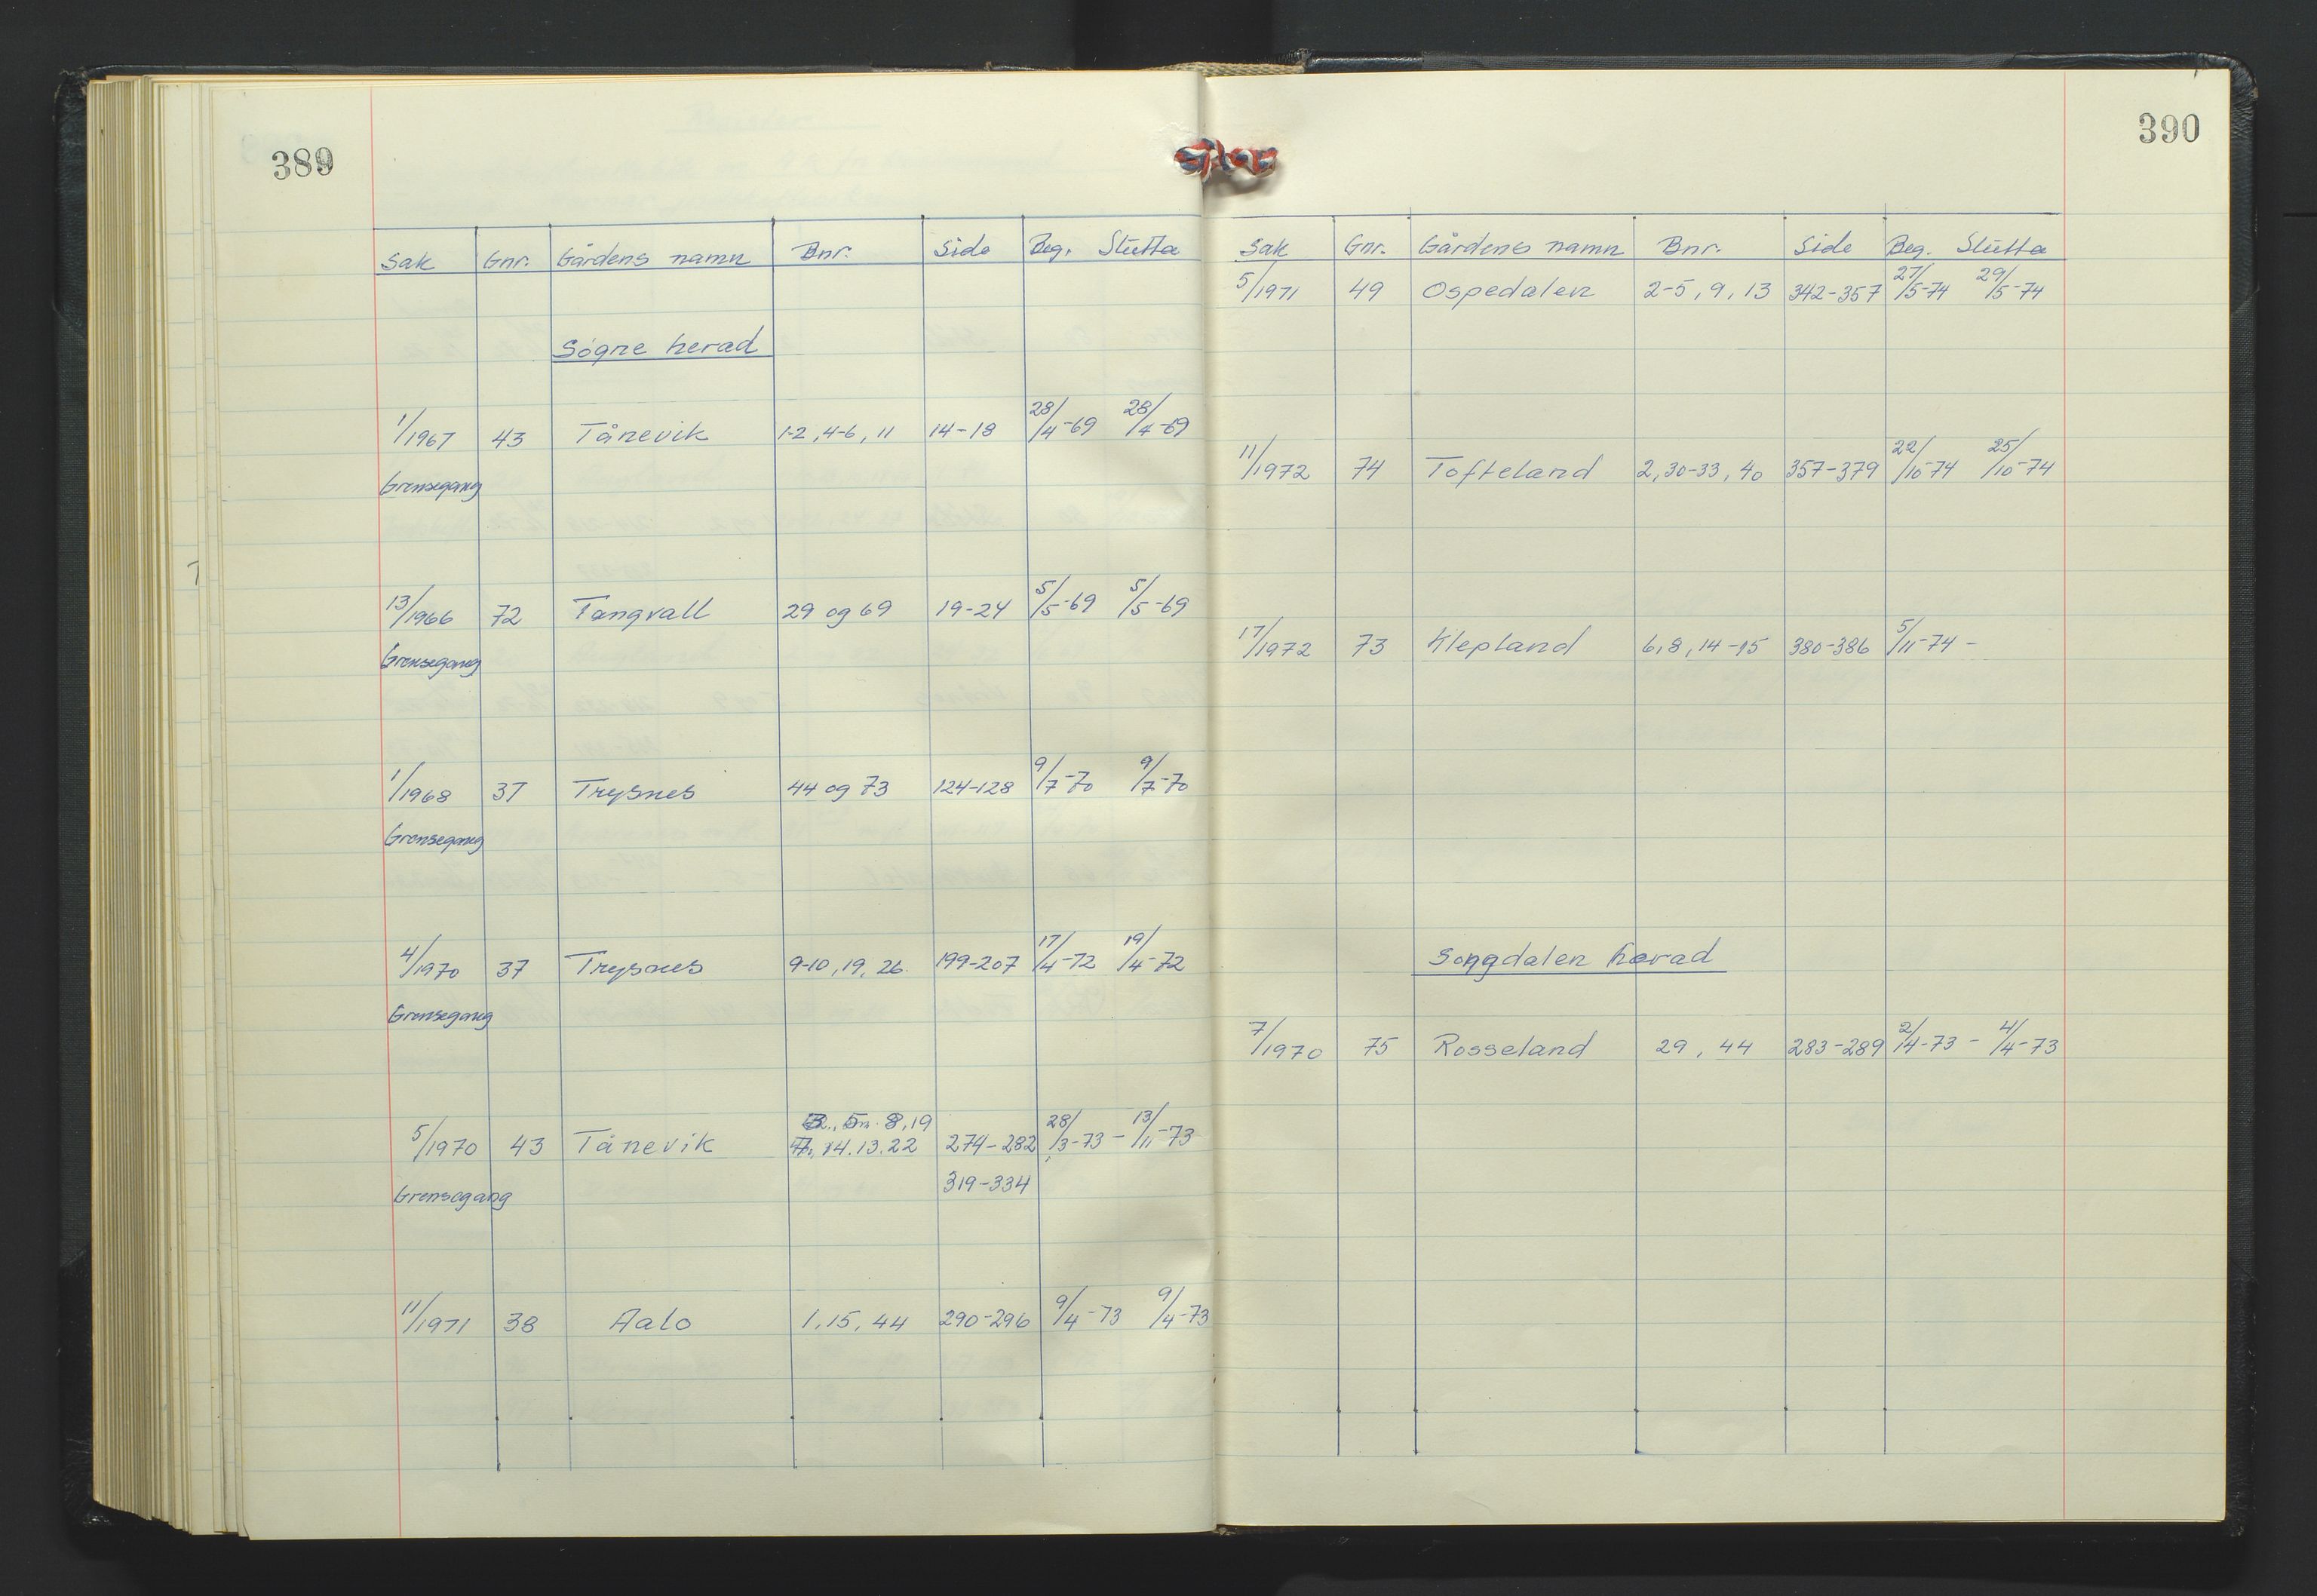 389
Sak Gnr. Gårdens namn Bnr. Side Beg. Slutta
Søgne herad
1/1967 43 Tånevik 1-2, 4-6, 11 14-18 28/4-69 28/4-69
Grensegang
13/1966 72 Tangvall 29 og 69 19-24 5/5-69 5/5-69
Grensegang
1/1968 37 Trysnes 44 og 73 124-128 9/7-70 9/7-70
Grensegang
4/1970 37 Trysnes 9-10, 19, 26. 199-207 17/4-72 19/4-72
Grensegang
8, 19
5/1970 43 Tånevik 14. 13. 22 274-282 28/3-73 - 13/11-73
319-334
Grensegang
11/1971 38 Aalo 1, 15, 44 290-296 9/4-73 9/4-73
390
Sak Gnr. Gårdens namn Bnr. Side Beg. Slutta
5/1971 49 Ospedalen 2-5, 9, 13 342-357 27/5-74 29/5-74
11/1972 74 Tofteland 2, 30-33, 40 357-379 22/10-74 25/10-74
17/1972 73 Klepland 6, 8, 14-15 380-386 5/11-74 -
Songdalen herad
7/1970 75 Rosseland 29, 44 283-289 2/4-73 - 4/4-73